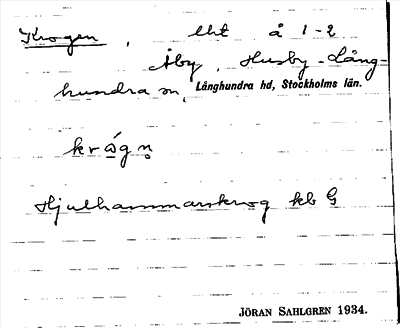 Krogen, lht å 1-2
Åby, Husby-Lång-
hundra sn, Långhundra hd, Stockholms län.
Hjulhammarskrog kb G
JÖRAN SAHLGREN 1934.